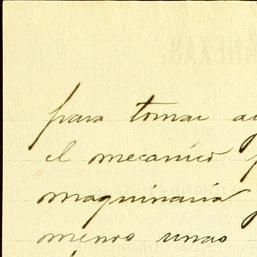 para tomar
el mecanico
maquinaria
menos unas